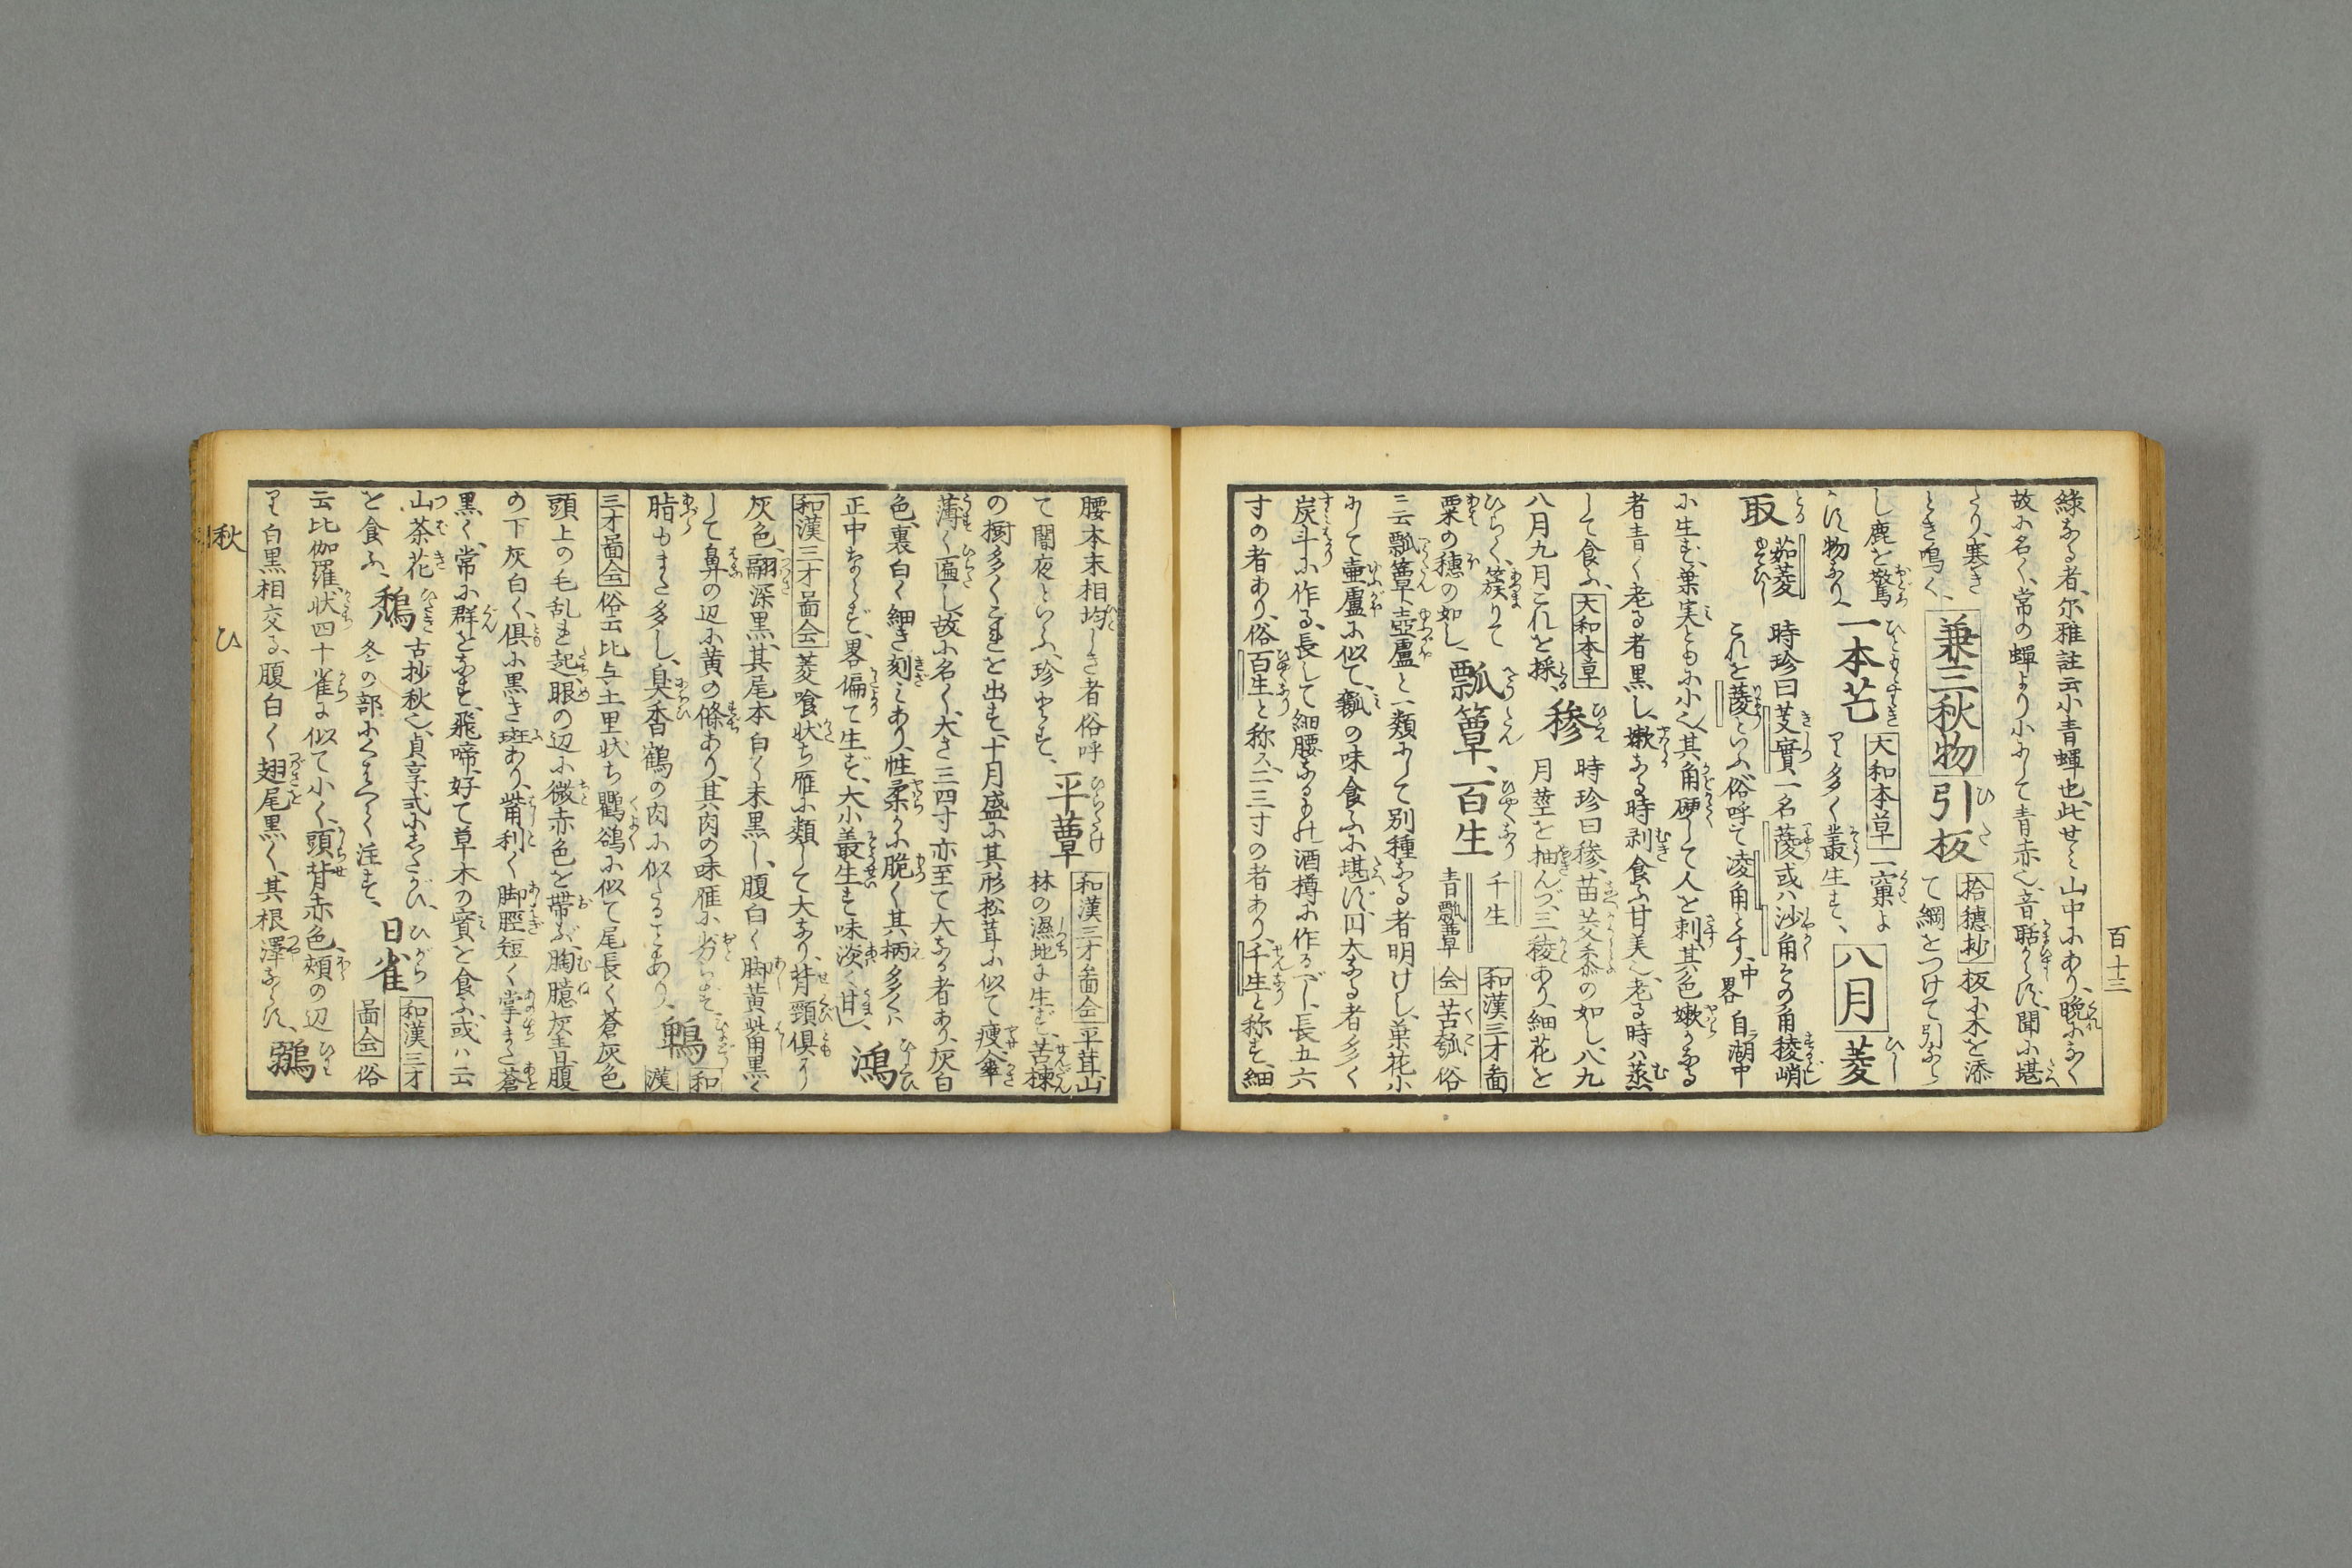 百十三
緑なる者、尓雅註云小青蝉也、此せミ山中にあり、晩になく
故に名く、常の蝉より小にして青赤色、音聒からず、聞に堪
たり、寒き
とき鳴く、
兼三秋物
引板
拾穂抄
板に木を添
て綱をつけて引ならし
鹿を驚かす物なり
一本芒
大和本草
一窠より多く叢生ず、
八月
菱
取
茹菱
時珍曰芰實、一名薐或ハ沙角その角稜峭
これを薐といふ俗呼て凌角とす、中畧自潮中
に生ず、菓実ともに小也、其角硬して人を刺其色嫰なる
者青く老る者黒し、嫰なる時剥食ふ甘美也、老る時ハ蒸
して食ふ、
大和本草
八月九月これを採、
穇
時珍曰穇、苗茭黍の如し、八九
月莖を抽んづ、三稜あり、細花を
ひらく、簇りて
粟の穂の如し、
瓢簞、百生
千生
青瓢簞
和漢三才啚
会
苦瓠俗
云瓢簞、壺盧と一類にして別種なる者明けし、菓花小
にして壷盧に似て、瓢の味食ふに堪ず、円大なる者多く
炭斗に作る、長して細腰なるもの酒樽に作るべし、長五六
寸の者あり、俗百生と称ス、二三寸の者あり、千生と称す、細
腰本末相均しき者俗呼
て闇夜といふ、珍也とす、
平蕈
和漢三才啚会
平茸山
林の濕地に生ず、苦楝
の樹多くこれを出す、十月盛に其形松茸に似て瘦傘
薄く匾し、故に名く、大さ三四寸亦至て大なる者あり、灰白
色、裏白く細き刻ミあり、性柔かに脆く其柄多くハ
正中ならず、畧偏て生ず、大小叢生す味淡く甘し、
鴻
和漢三才啚会
菱喰状ち雁に類して大なり、背頸倶に
灰色、翮深黒、其尾本白く末黒し、腹白く脚黄觜黒く
して鼻の辺に黄の條あり、其肉の味雁に劣らず、
脂もまた多し、臭香鶴の肉に似たることあり、
鵯
和漢
三才啚会
俗云比与土里状ち鸜鵒に似て尾長く蒼灰色
頭上の毛乱れ起、眼の辺に微赤色を帯ぶ、胸臆灰青腹
の下灰白く、倶に黒き斑あり、觜利く脚脛短く掌また蒼
黒く、常に群をなす、飛啼、好て草木の實を食ふ、或ハ云
山茶花
を食ふ、
鵚
古抄秋也、貞享式にしたがひ、
冬の部にくはしく注す、
日雀
和漢三才
啚会
俗
云比伽羅、状四十雀に似て小く、頭背赤色、頰の辺
白黒相交る、腹白く翅尾黒く、其根澤ならず、
鶸
秋
ひ